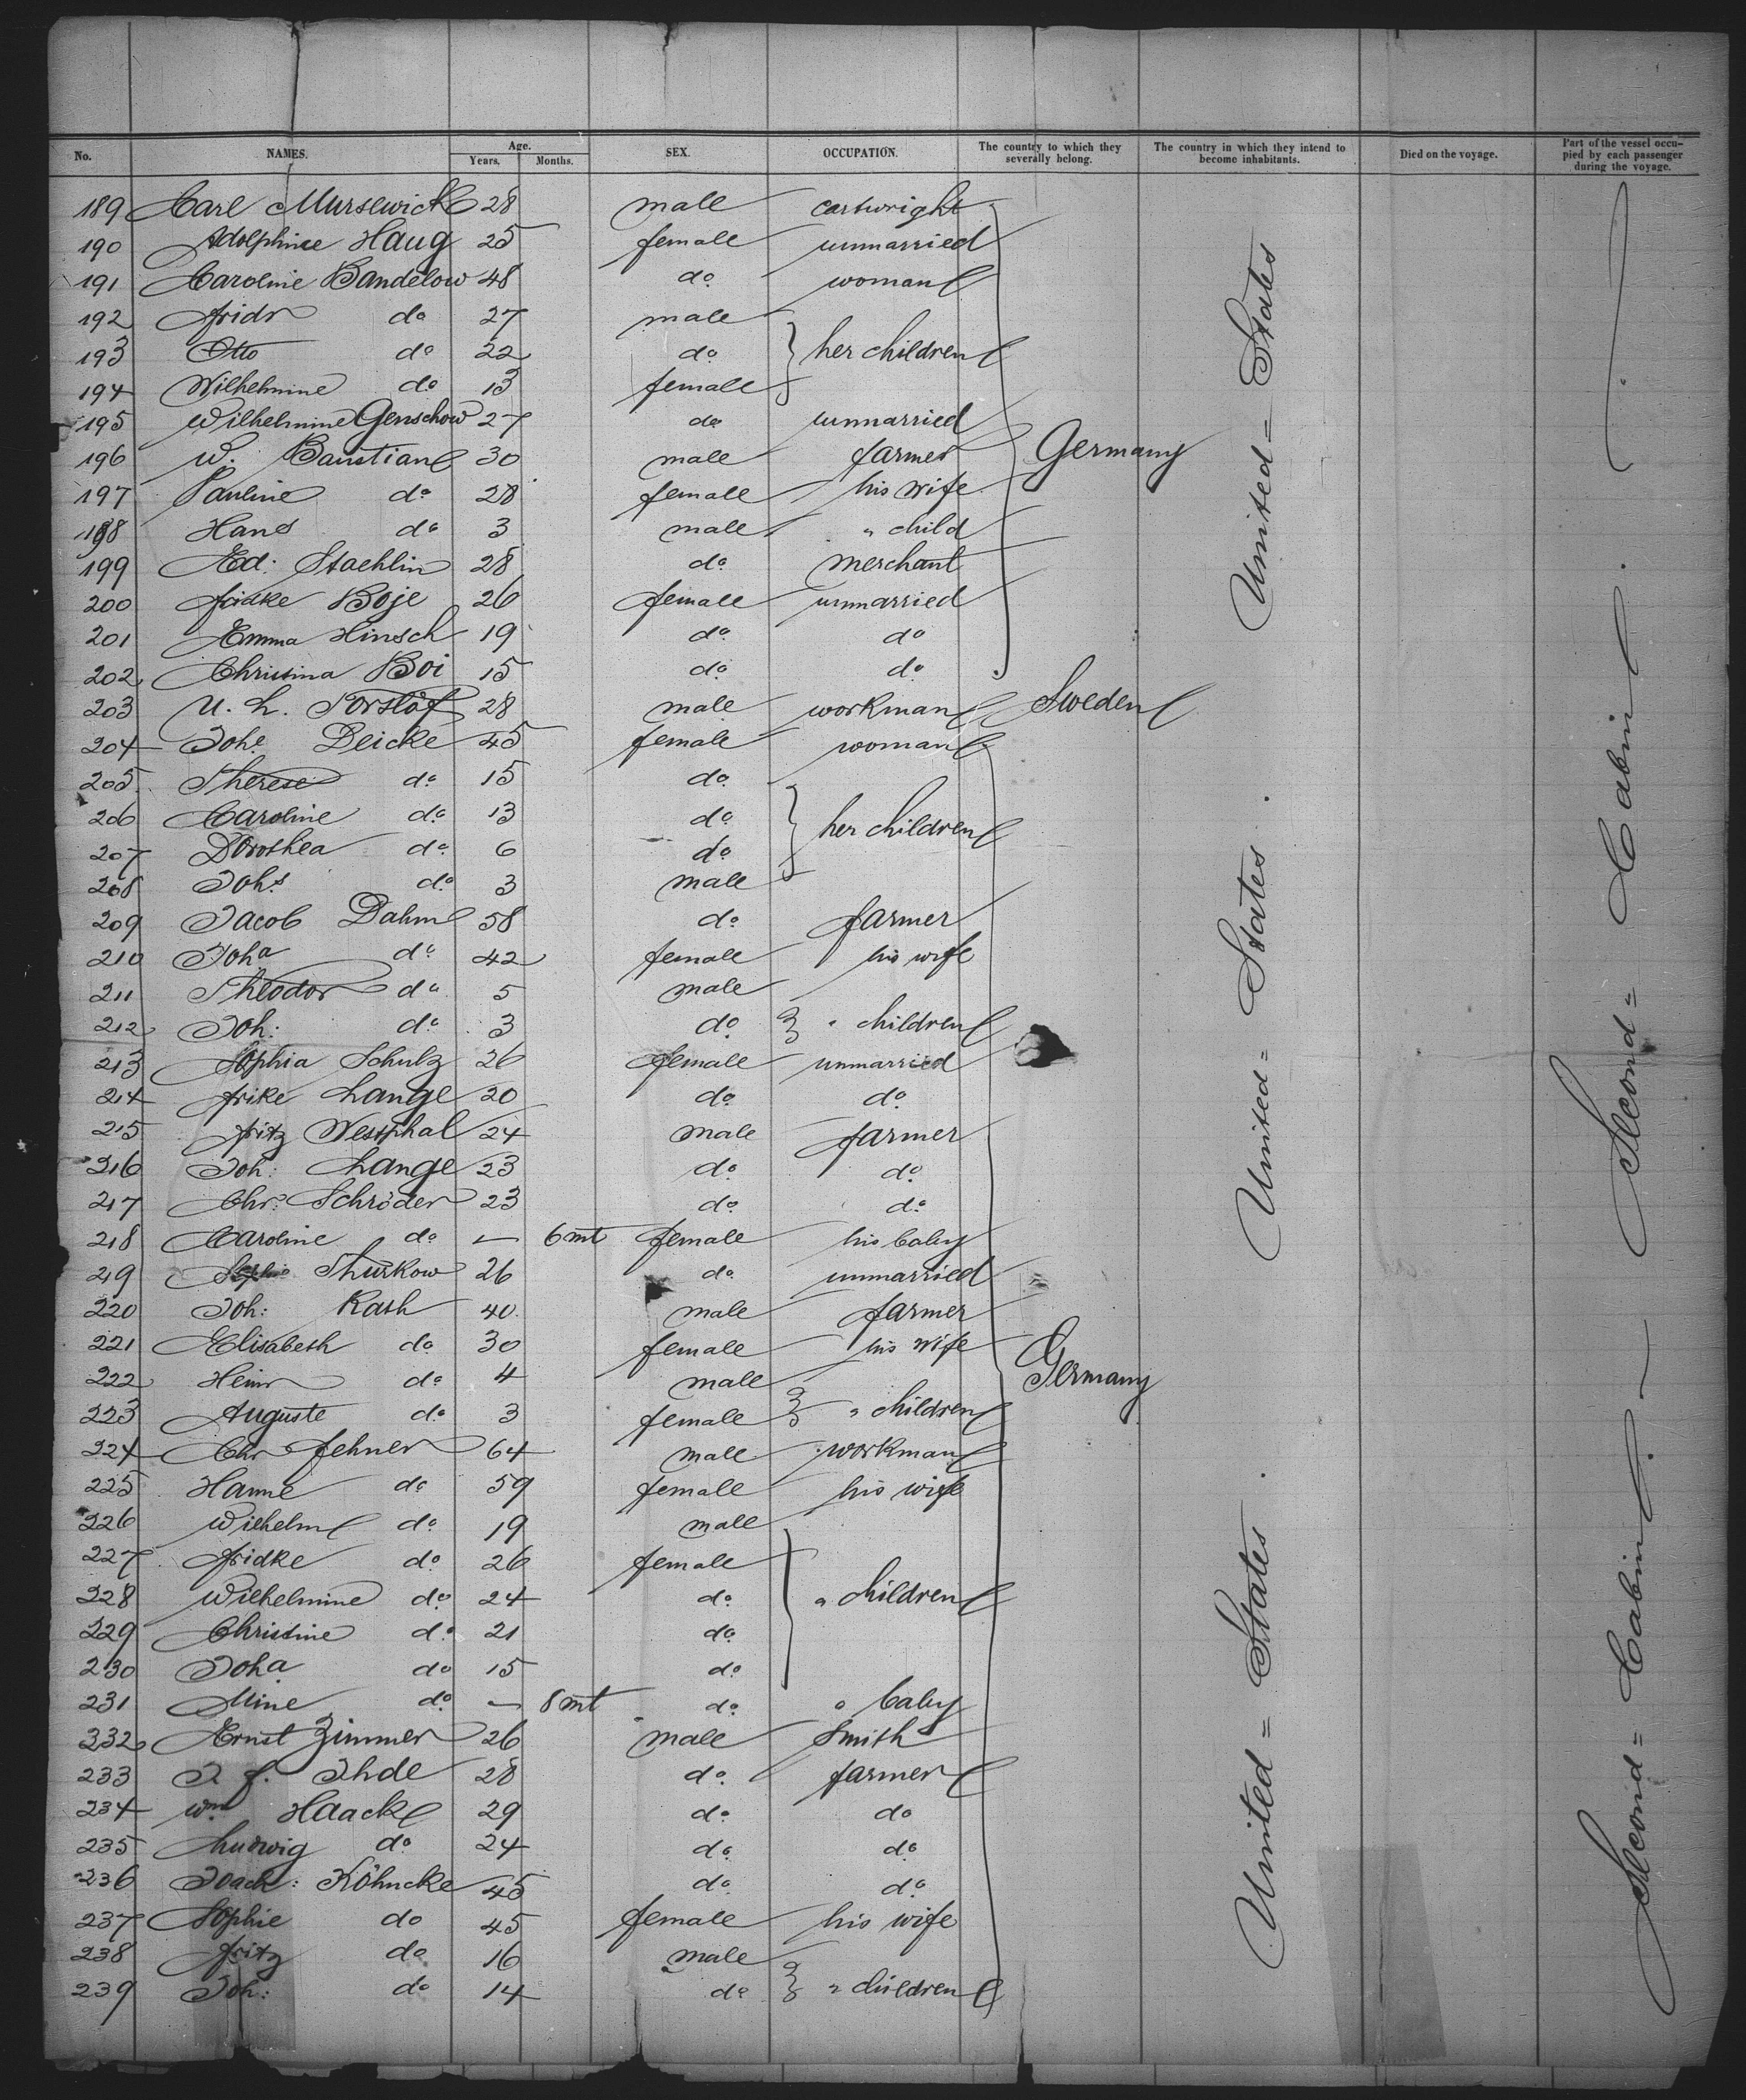 No. NAMES. Age. Years. Months. SEX. OCCUPATION. The country to which they severally belong. The country in which they intend to become inhabitants. Died on the voyage. Part of the vessel occu-pied by each passenger during the voyage.
189 Carl Murslwick 28 male cartwright
190 Adolphine Haug 25 female unmarried
191 Caroline Bandelow 48 do woman
192 Fridr do 27 male
193 Otto do 22 do her children
194 Wilhelmine do 13 female
195 Wilhelmine Genschow 27 do unmarried
196 W. Banstian 30 male farmer Germany
197 Pauline do 28 female his wife
198 Hans do 3 male " child
199 Ed: Staehlin 28 do merchant
200 Fridke Boje 26 female unmarried
201 Emma Hinsch 19 do do
202 Christina Boi 15 do do
203 U. L. Torslöf 28 male workman Sweden
204 Johe Deicke 45 female woman
205 Therese do 15 do
206 Caroline do 13 do her children
207 Dorothea do 6 do
208 Johs do 3 male
209 Jacob Dahm 58 do farmer
210 Joha do 42 female his wife
211 Theodor do 5 male
212 Joh: do 3 do " children
213 Sophia Schulz 26 female unmarried
214 Frike Lange 20 do do
215 Fritz Westphal 24 male farmer
216 Joh: Lange 23 do do
217 Chr: Schröder 23 do do
218 Caroline do — 6 mt female his baby
219 Sophie Thurkow 26 do unmarried
220 Joh: Rath 40 male farmer
221 Elisabeth do 30 female his wife
222 Heinr do 4 male Germany
223 Auguste do 3 female " children
224 Chr Fehner 64 male workman
225 Hanne do 59 female his wife
226 Wilhelm do 19 male
227 Fridke do 26 female
228 Wilhelmine do 24 do " children
229 Christine do 21 do
230 Joha do 15 do
231 Mine do — 8 mt do " baby
232 Ernst Zimmer 26 male Smith
233 J. F. Ihde 28 do farmer
234 Wm Haack 29 do do
235 Ludwig do 24 do do
236 Joach: Köhncke 45 do do
237 Sophie do 45 female his wife
238 Fritz do 16 male
239 Joh: do 14 do " children
United = States
United = States.
United = States.
Second = Cabin.
Second = Cabin.